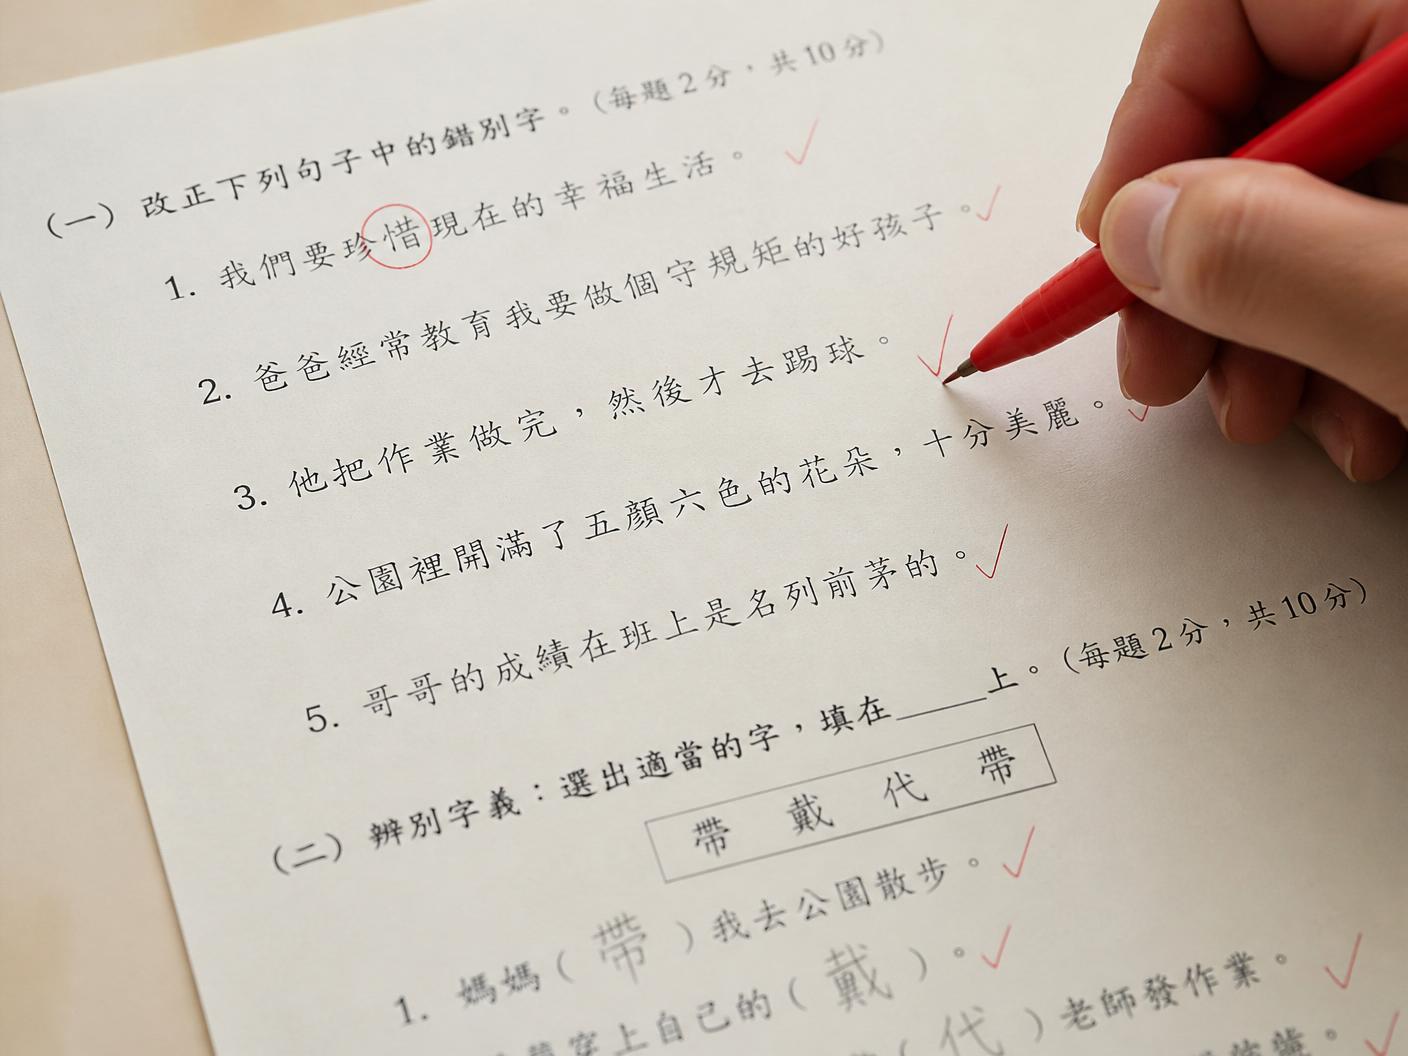 （一）改正下列句子中的錯別字。（每題2分，共10分）
1. 我們要珍惜現在的幸福生活。
2. 爸爸經常教育我要做個守規矩的好孩子。
3. 他把作業做完，然後才去踢球。
4. 公園裡開滿了五顏六色的花朵，十分美麗。
5. 哥哥的成績在班上是名列前茅的。
（二）辨別字義：選出適當的字，填在_____上。（每題2分，共10分）
帶 戴 代 帶
1. 媽媽（帶）我去公園散步。
穿上自己的（戴）。
（代）老師發作業。